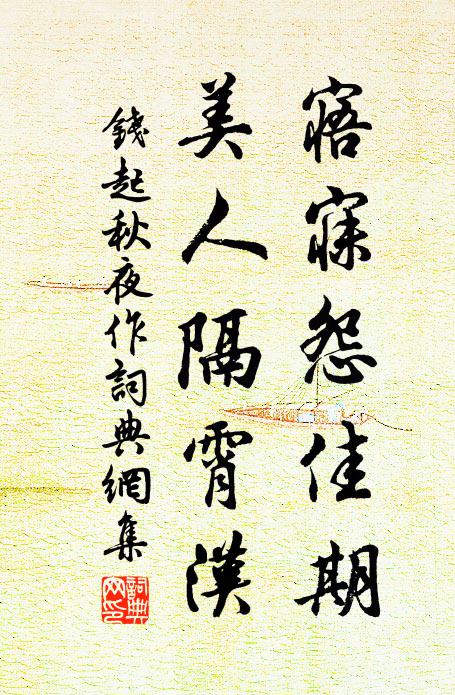 寤寐怨佳期
美人隔霄漢
錢起秋夜作詞典網集
詞典
网印